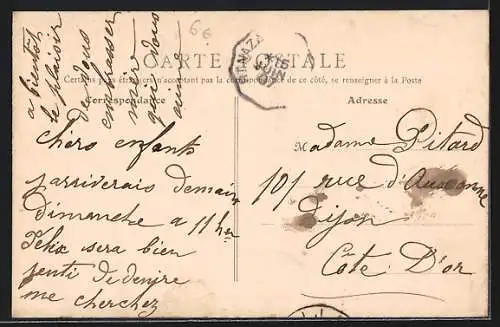 66
CARTE POSTALE
Certains pays étrangers n'acceptant pas la correspondance de ce côté, se renseigner à la Poste
Correspondance
Adresse
chers enfants
jarriverais demain
Dimanche a 11 hr
Felix sera bien
jenti de venire
me cherchez
a bientot
le plaisir
de vous
embrasser
mère
qui vous
aime
Madame Pitard
101 rue d'Auxonne
Dijon
Côte D'or